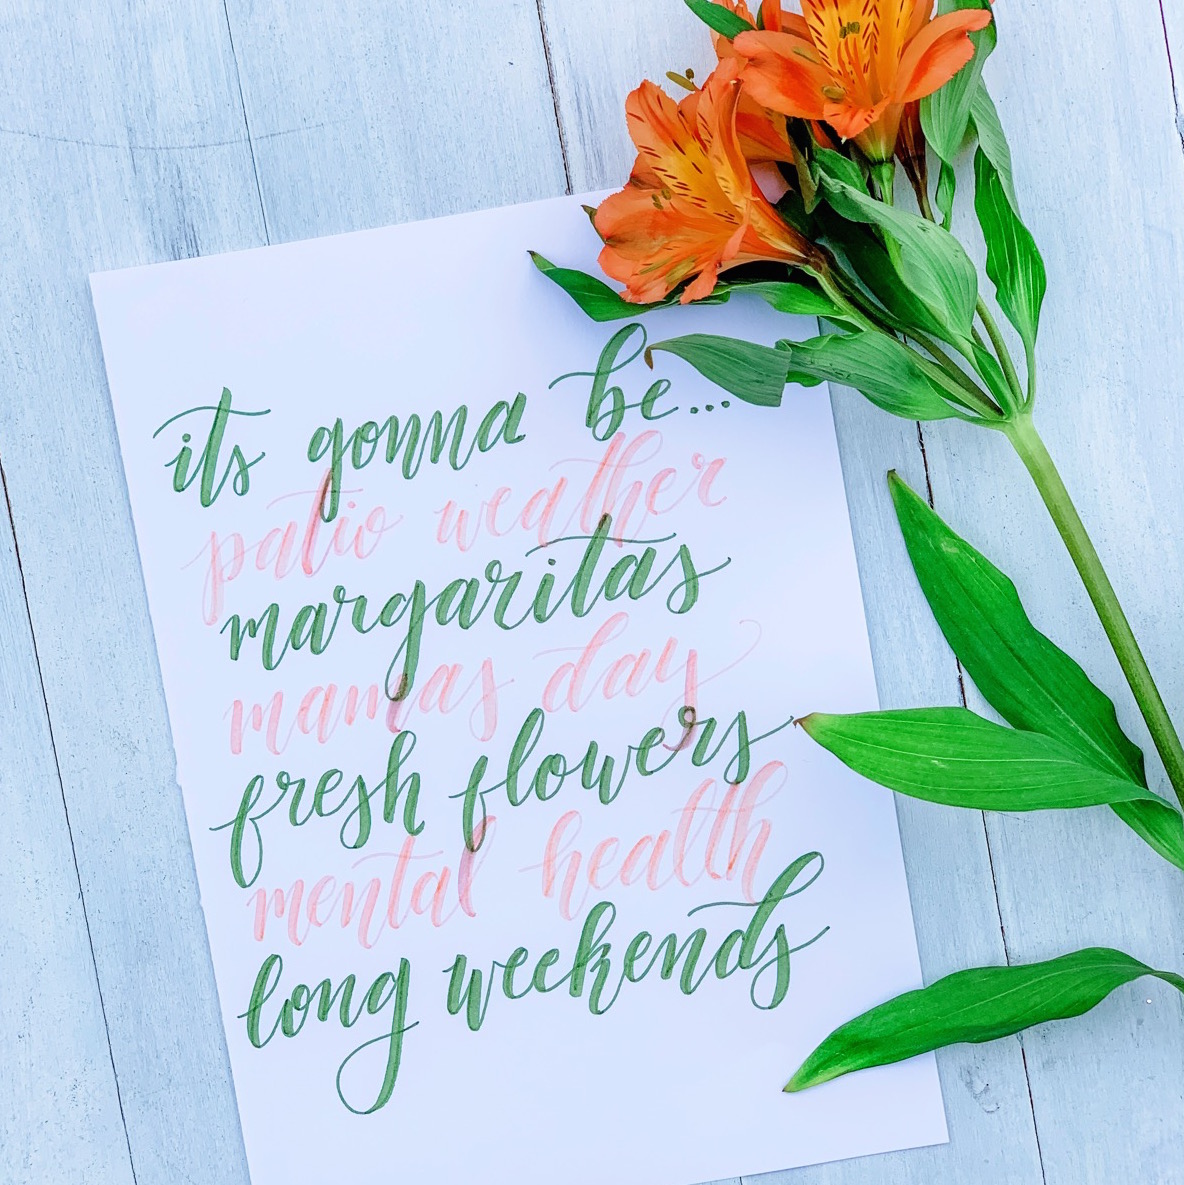 its gonna be...
patio weather
margaritas
mamas day
fresh flowers
mental health
long weekends